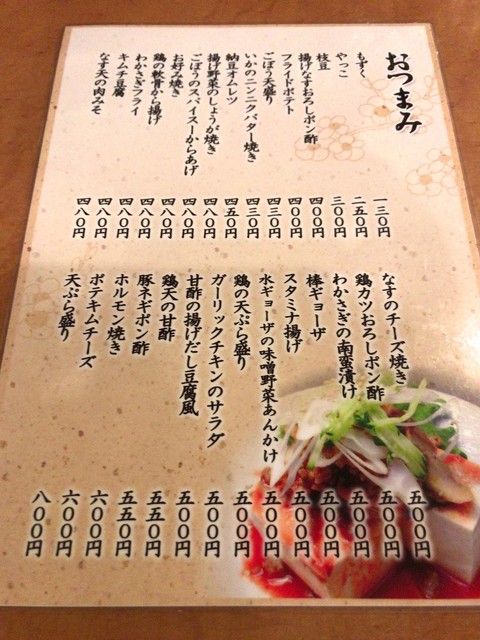 おつまみ
もずく 一三〇円
やっこ 二五〇円
枝豆 三〇〇円
揚げなすおろしポン酢 四〇〇円
フライドポテト 四〇〇円
ごぼう天盛り 四三〇円
いかのニンニクバター焼き 四三〇円
納豆オムレツ 四五〇円
揚げ野菜のしょうが焼き 四八〇円
ごぼうのスパイスーからあげ 四八〇円
お好み焼き 四八〇円
鶏の軟骨から揚げ 四八〇円
わかさぎフライ 四八〇円
キムチ豆腐 四八〇円
なす天の肉みそ 四八〇円
なすのチーズ焼き 五〇〇円
鶏カツおろしポン酢 五〇〇円
わかさぎの南蛮漬け 五〇〇円
棒ギョーザ 五〇〇円
スタミナ揚げ 五〇〇円
水ギョーザの味噌野菜あんかけ 五〇〇円
鶏の天ぷら盛り 五〇〇円
ガーリックチキンのサラダ 五〇〇円
甘酢の揚げだし豆腐風 五〇〇円
鶏天の甘酢 五五〇円
豚ネギポン酢 五五〇円
ホルモン焼き 六〇〇円
ポテキムチーズ 六〇〇円
天ぷら盛り 八〇〇円